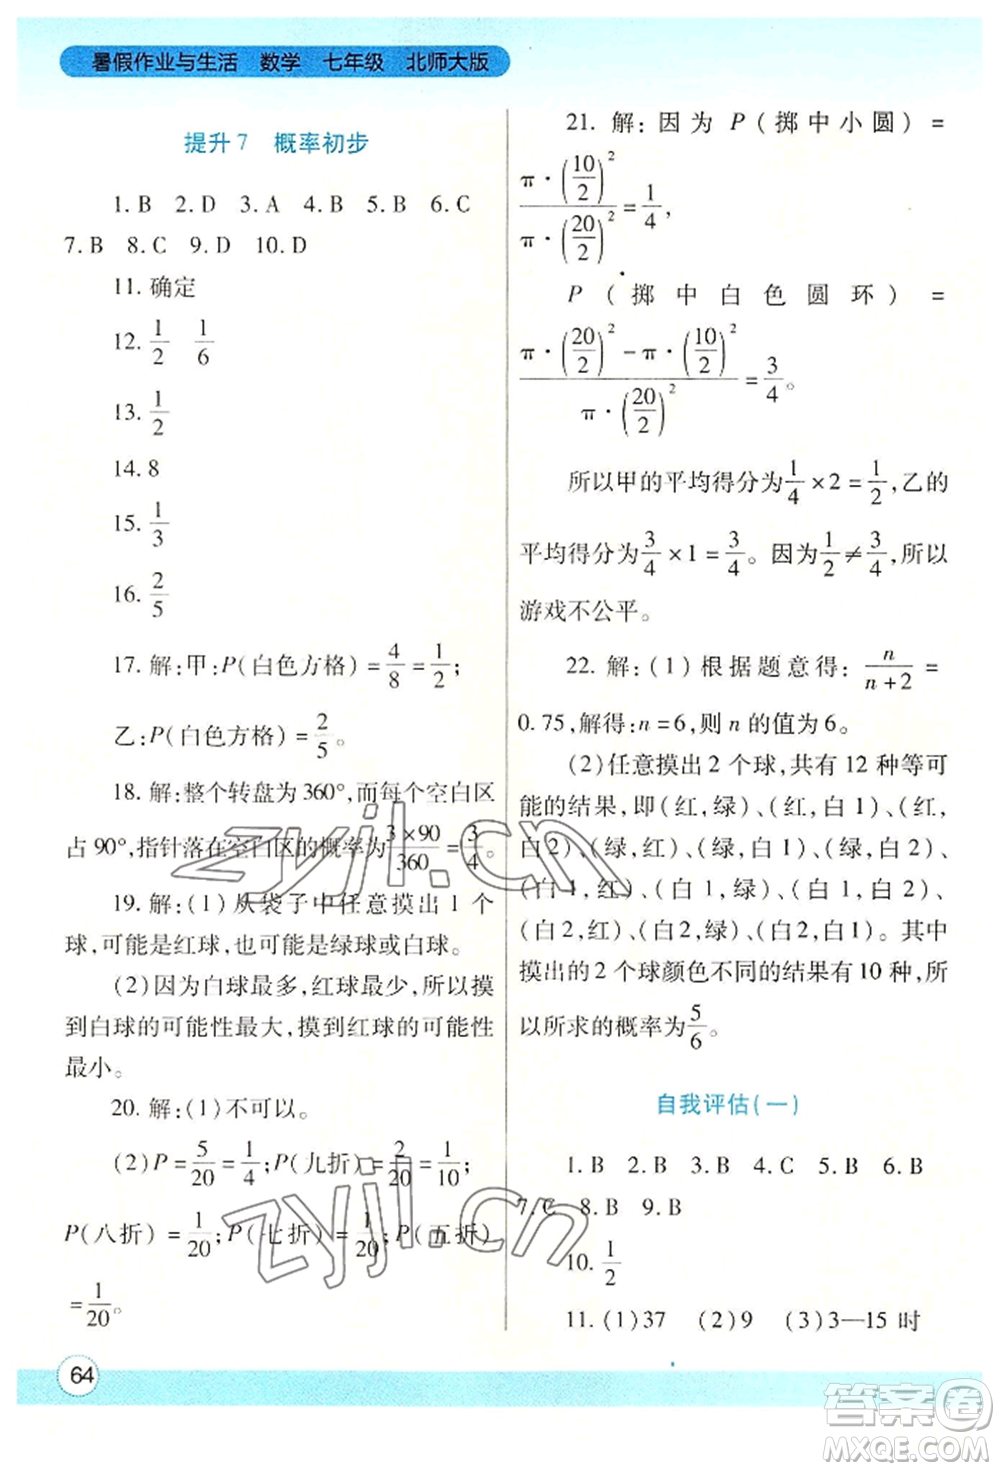 暑假作业与生活 数学 七年级 北师大版
提升7 概率初步
1. B 2. D 3. A 4. B 5. B 6. C
7. B 8. C 9. D 10. D
11. 确定
12. 1/2 1/6
13. 1/2
14. 8
15. 1/3
16. 2/5
17. 解:甲:P(白色方格)=4/8=1/2;
乙:P(白色方格)=2/5。
18. 解:整个转盘为360°,而每个空白区
占90°,指针落在空白区的概率为3×90/360=3/4。
19. 解:(1)从袋子中任意摸出1个
球,可能是红球,也可能是绿球或白球。
(2)因为白球最多,红球最少,所以摸
到白球的可能性最大,摸到红球的可能性
最小。
20. 解:(1)不可以。
(2)P=5/20=1/4;P(九折)=2/20=1/10;
P(八折)=1/20;P(七折)=1/20;P(五折)
=1/20。
64
21. 解:因为P(掷中小圆)=
π·(10/2)²/π·(20/2)²=1/4,
P(掷中白色圆环)=
π·(20/2)²-π·(10/2)²/π·(20/2)²=3/4。
所以甲的平均得分为1/4×2=1/2,乙的
平均得分为3/4×1=3/4。因为1/2≠3/4,所以
游戏不公平。
22. 解:(1)根据题意得:n/n+2=
0.75,解得:n=6,则n的值为6。
(2)任意摸出2个球,共有12种等可
能的结果,即(红,绿)、(红,白1)、(红,
白2)、(绿,红)、(绿,白1)、(绿,白2)、
(白1,红)、(白1,绿)、(白1,白2)、
(白2,红)、(白2,绿)、(白2,白1)。其中
摸出的2个球颜色不同的结果有10种,所
以所求的概率为5/6。
自我评估(一)
1. B 2. B 3. B 4. A 5. B 6. B
7. C 8. B 9. B
10. 1/2
11. (1)37 (2)9 (3)3—15时
zyjl.cn
zyjl.cn
答案圈
MXQE.COM